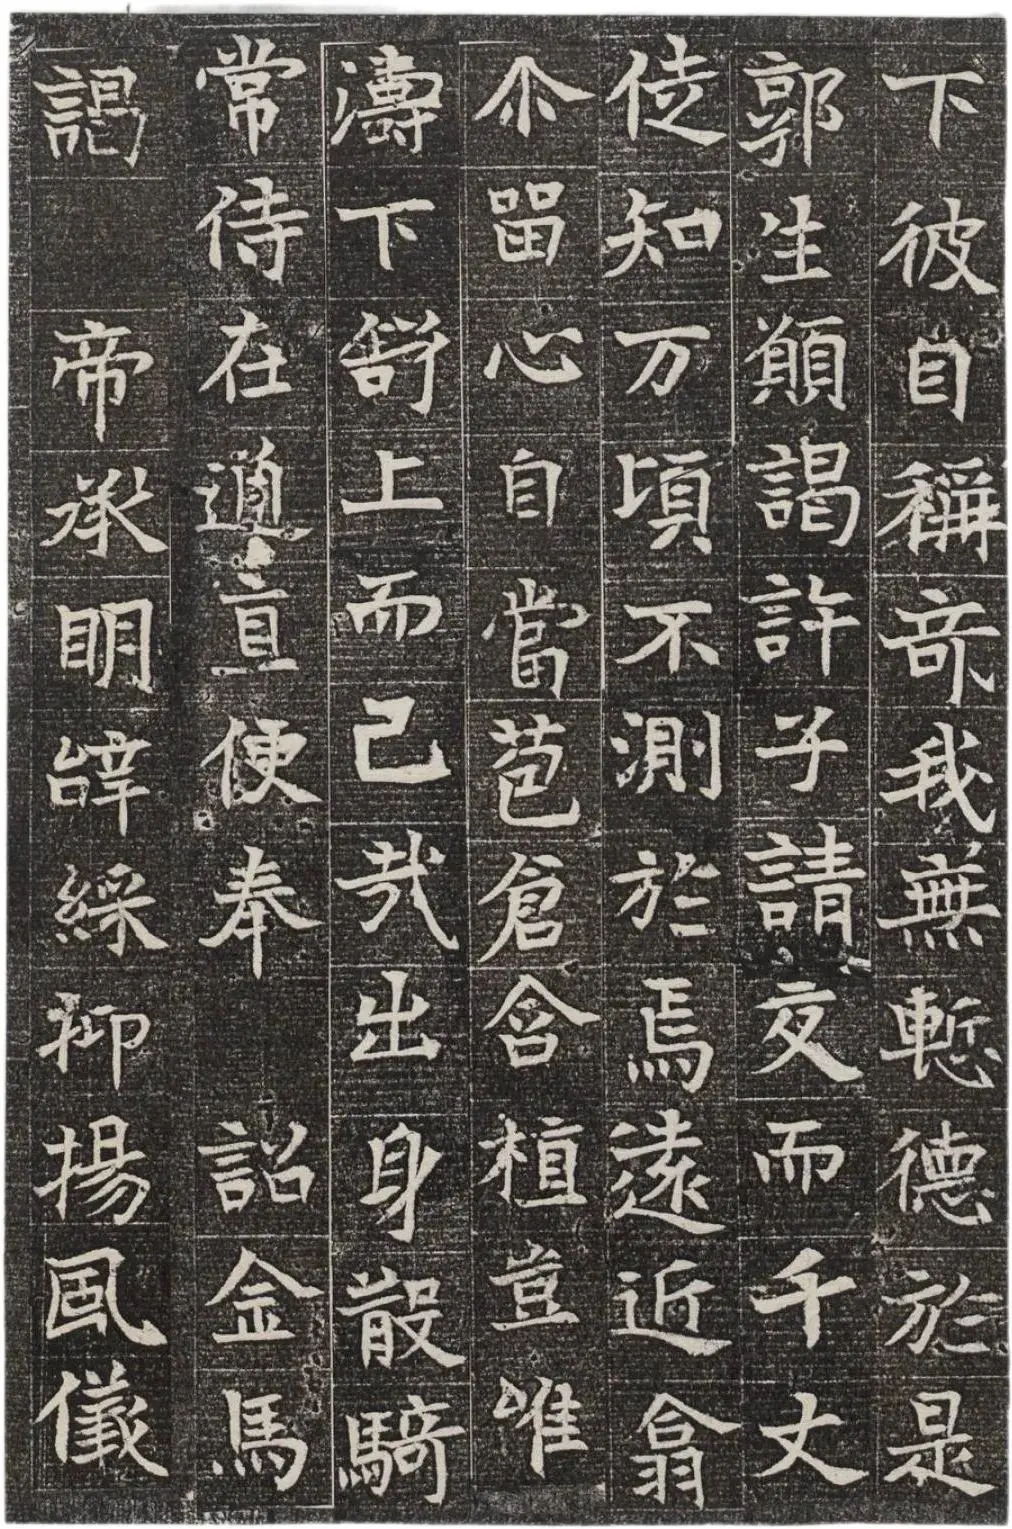 下彼自稱奇我無慙德於是
郭生願謁許子請交而千丈
徒知万頃不測於焉遠近翕
尒留心自當苞倉含植豈唯
濤下上而已哉出身散騎
常侍在通直便奉詔金馬
謁帝承明辝綵抑揚風儀